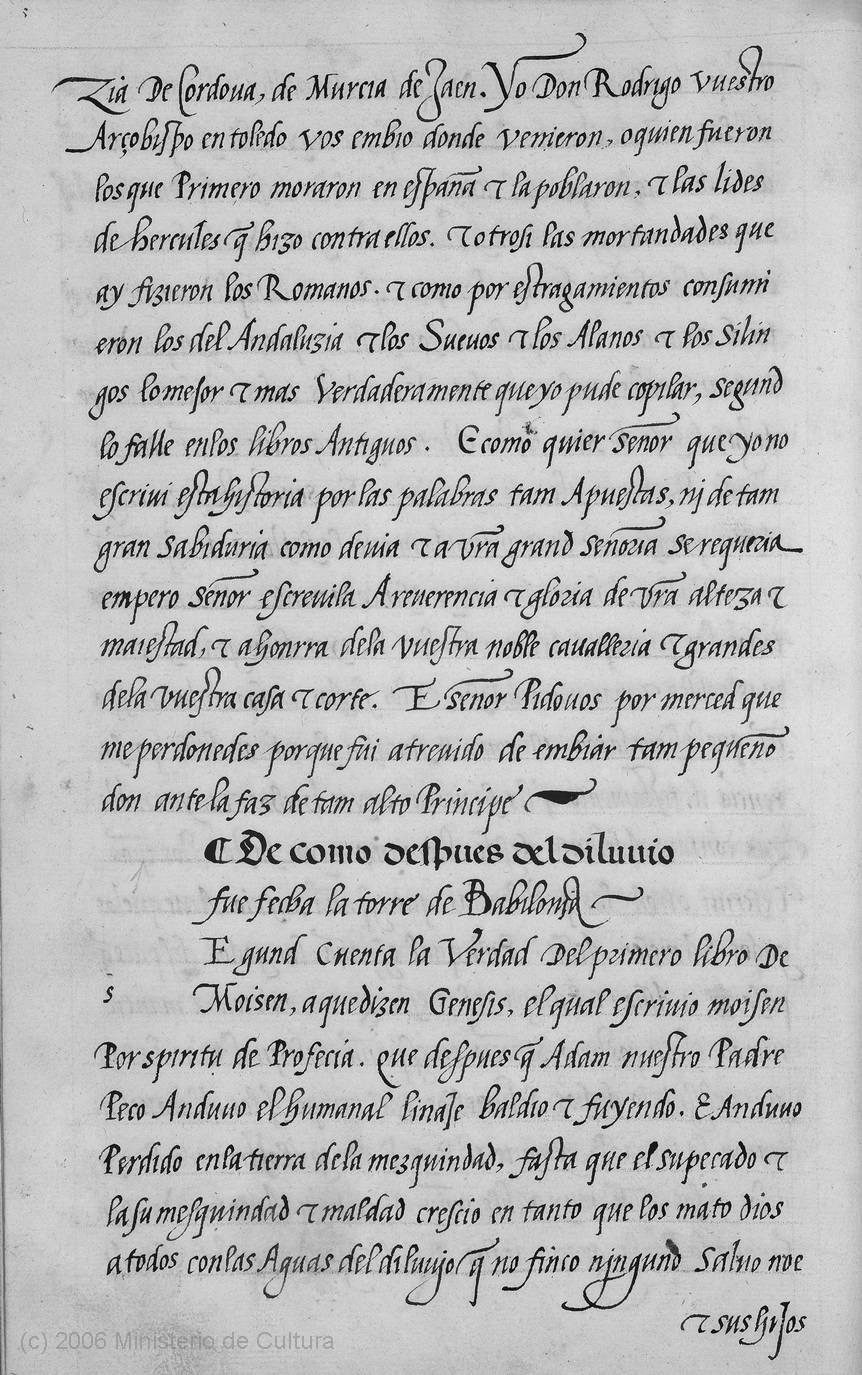 5
zia De Cordova, de Murcia de Jaen. Yo Don Rodrigo vuestro
Arçobispo en toledo vos embio donde venieron, o quien fueron
los que Primero moraron en españa τ la poblaron, τ las lides
de hercules q̃ hizo contra ellos. τ otrosi las mortandades que
ay fizieron los Romanos. τ como por estragamientos consumi
eron los del Andaluzia τ los Suevos τ los Alanos τ los Silin
gos lo mejor τ mas Verdaderamente que yo pude copilar, segund
lo falle en los libros Antiguos. E como quier señor que yo no
escrivi esta historia por las palabras tam Apuestas, nj de tam
gran sabiduria como devia τ a vr̃a grand señoria se requeria
empero señor escrevila A reverencia τ gloria de vr̃a alteza τ
maiestad, τ a honrra dela vuestra noble cavalleria τ grandes
dela vuestra casa τ corte. E señor Pidovos por merced que
me perdonedes porque fui atrevido de embiar tam pequeño
don ante la faz de tam alto Principe
¶ De como despues del diluuio
fue fecha la torre de Babilonia
E gund Cuenta la Verdad Del primero libro De
s
Moisen, a que dizen Genesis, el qual escrivio moisen
Por spiritu de Profecia. que despues q̃ Adam nuestro Padre
Peco Anduvo el humanal linaje baldio τ fuyendo. E Anduvo
Perdido en la tierra de la mezquindad, fasta que el su pecado τ
la su mesquindad τ maldad crescio en tanto que los mato dios
a todos con las Aguas del diluvjo q̃ no finco njngund Salvo noe
τ sus hijos
(c) 2006 Ministerio de Cultura